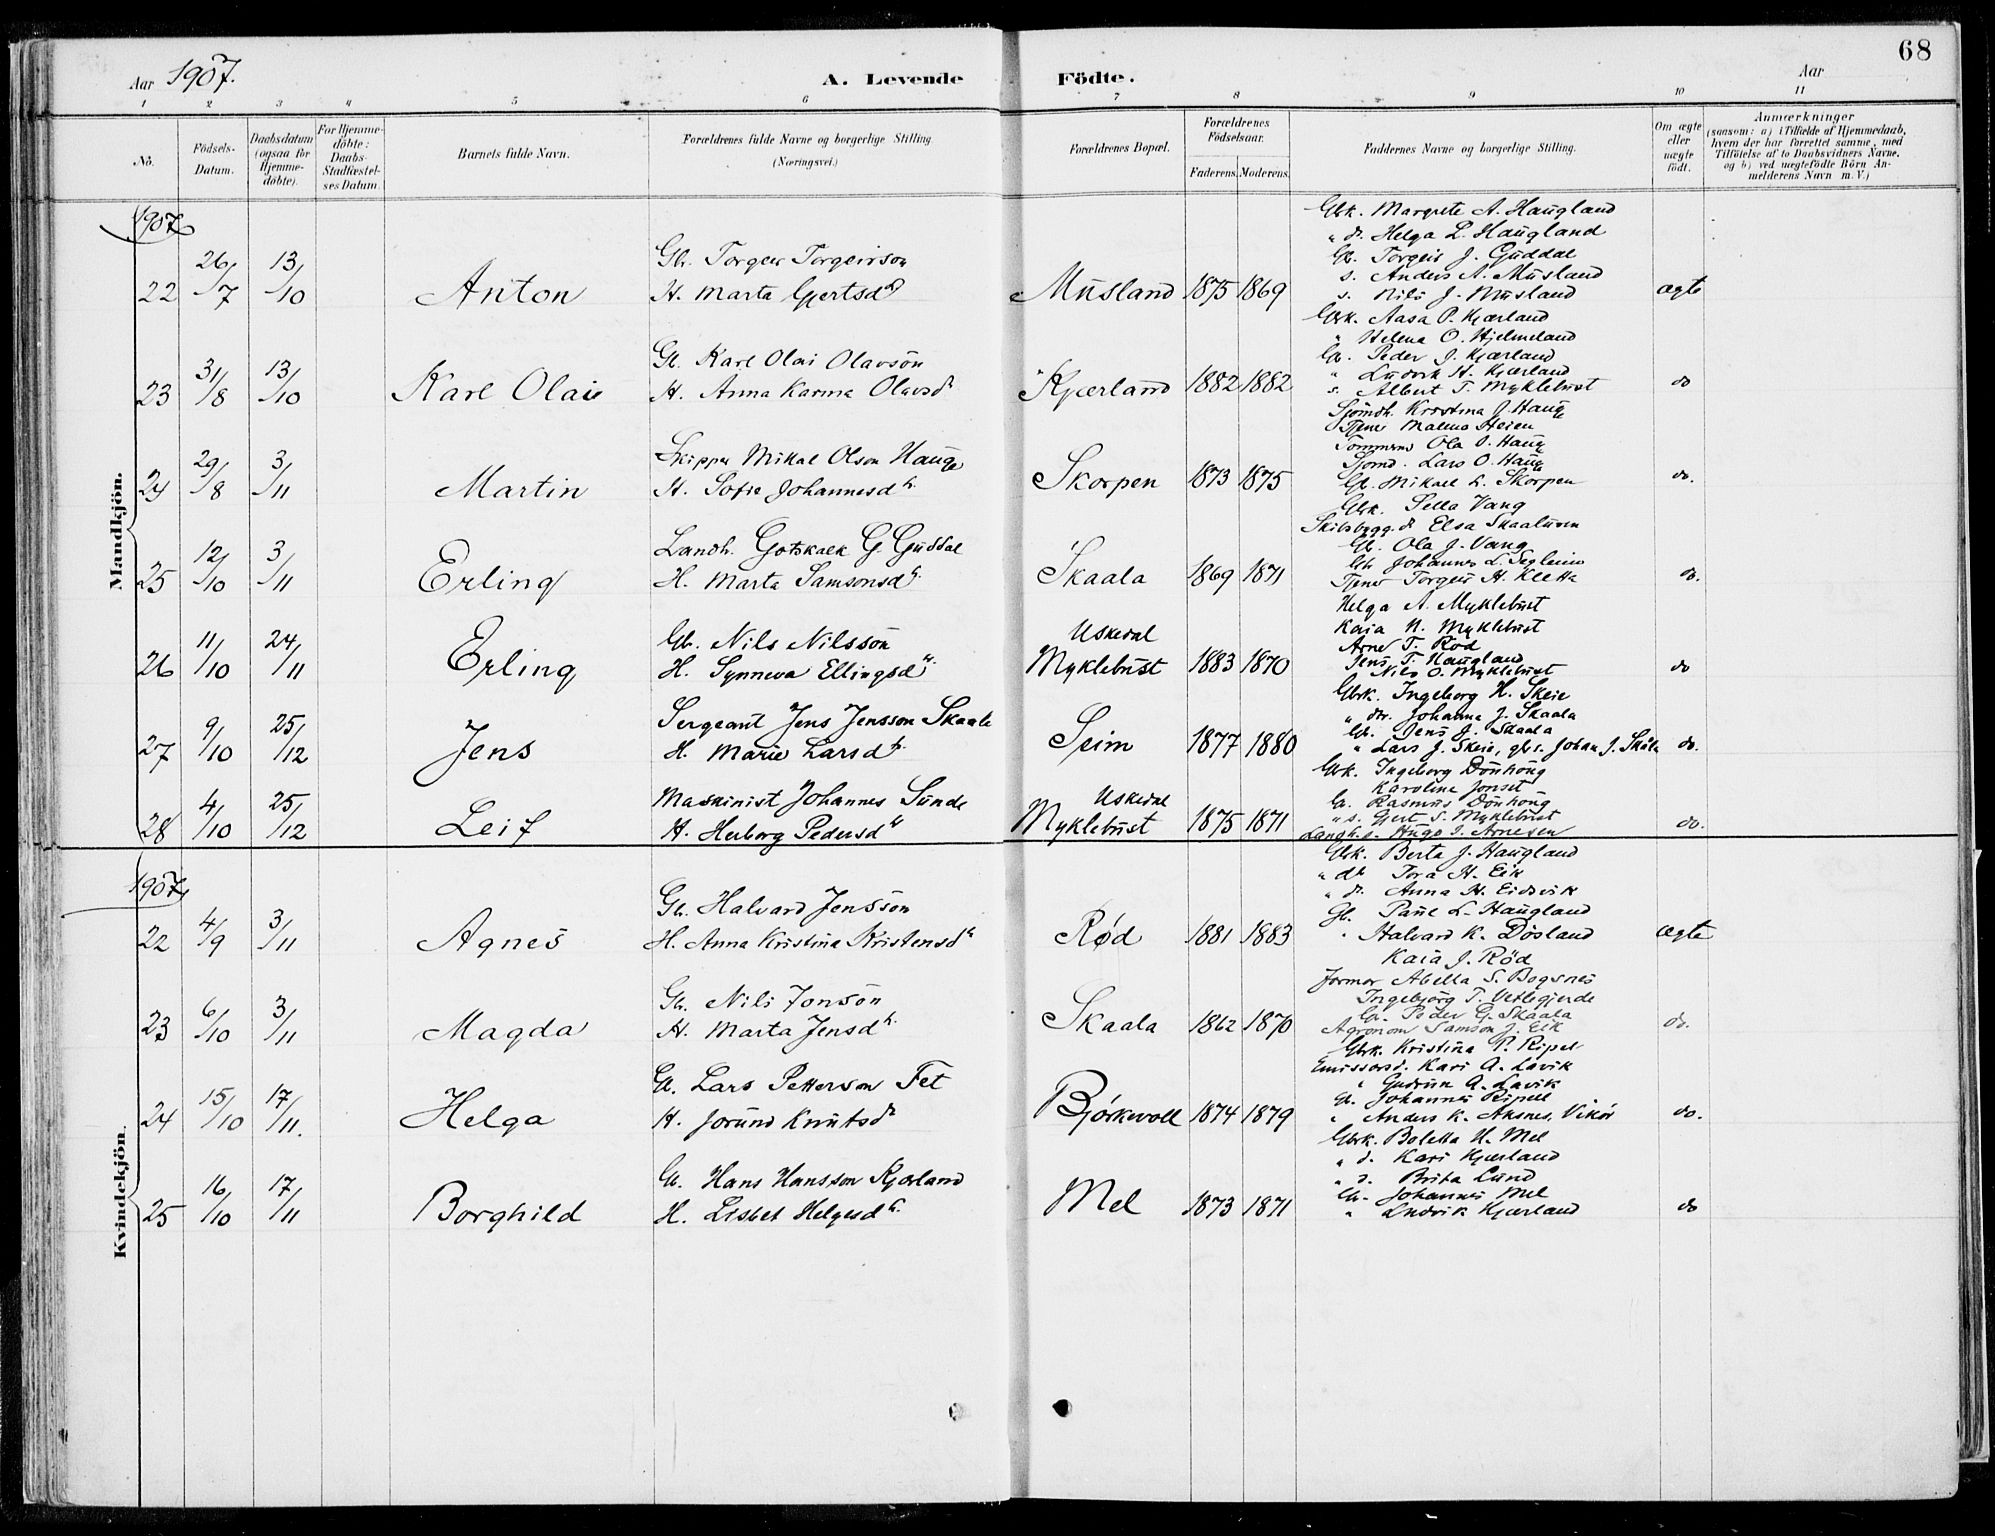 68
Aar 1907.
A. Levende Födte.
Aar
1 2 3 4 5 6 7 8 9 10 11
No.
Födsels-
Datum.
Daabsdatum
(ogsaa for
Hjemme-
döbte).
For Hjemme-
döbte:
Daabs-
Stadfæstel-
ses Datum.
Barnets fulde Navn.
Forældrenes fulde Navne og borgerlige Stilling
(Næringsvei.)
Forældrenes Bopæl.
Forældrenes
Födselsaar.
Faderens. Moderens.
Faddernes Navne og borgerlige Stilling.
Om ægte
eller
uægte
födt.
Anmærkninger
(saasom: a) i Tilfælde af Hjemmedaab,
hvem der har forrettet samme, med
Tilföielse af to Daabsvidners Navne,
og b) ved uægtefödte Börn An-
melderens Navn m. V.)
Mandkjön.
1907
22 26/7 13/10 Anton
Gb. Torgeir Torgeirson
H. Marta Gjertsd
Musland 1875 1869
Gbk. Margrete A. Haugland
" d. Helga L. Haugland
Gb. Torgeir J. Guddal
s. Anders A. Musland
s. Nils J. Musland
ægte
23 31/8 13/10 Karl Olai
Gb. Karl Olai Olavsön
H. Anna Karina Olavsd
Kjærland 1882 1882
Gbk. Aasa P. Kjærland
" Helena O. Hjelmeland
Gb. Peder J. Kjærland
" Ludvik H. Kjærland
s. Albert T. Myklebust
do
24 29/8 3/11 Martin
Skipper Mikal Olson Hauge
H. Sofie Johannesd
Skorpen 1873 1875
Sjömdh. Kristina J. Hauge
Tjener Malena Heien
Tömmerm Ola O. Hauge
Sjömd. Lars O. Hauge
Gb. Mikael L. Skorpen
do.
25 12/10 3/11 Erling
Landh. Gotskalk G. Guddal
H. Marta Samsonsd
Skaala 1869 1871
Gbk. Sella Vang
Skibsbygg. d. Elsa Skaaluren
Gb. Ola J. Vang
Gb. Johannes L. Segleim
Tjener Torgeir H. Kletta
do.
26 11/10 24/11 Erling
Gb. Nils Nilssön
H. Synneva Ellingsd
Uskedal
Myklebust 1883 1870
Helga A. Myklebust
Kaia N. Myklebust
Arne T. Röd
Jens T. Haugland
Nils O. Myklebust
do
27 9/10 25/12 Jens
Sergeant Jens Jensson Skaala
H. Marie Larsd
Seim 1877 1880
Gbk. Ingeborg H. Skeie
" dtr. Johanna J. Skaala
Gb. Jens J. Skaala
" Lars J. Skeie, gbs. Johan J. Skåla
do.
28 4/10 25/12 Leif
Maskinist Johannes Sunde
H. Herborg Pedersd
Uskedal
Myklebust 1875 1871
Gbk. Ingeborg Dönhöug
Karoline Jonset
Gb. Rasmus Dönhöug
" s. Gjert S. Myklebust
Landh. s. Hugo I. Arnesen
do.
Kvindekjön.
1907
22 4/9 3/11 Agnes
Gb. Halvard Jenssön
H. Anna Kristina Kristensd
Rød 1881 1883
Gbk. Berta J. Haugland
" d. Tora H. Eik
" d. Anna H. Eidsvik
Gb. Paul L. Haugland
" Halvard K. Døsland
Kaia J. Röd
ægte
23 6/10 3/11 Magda
Gb. Nils Jonsön
H. Marta Jensd
Skaala 1862 1870
Jormor Abella S. Bogsnes
Ingebjörg T. Vetlegjerde
Gb. Peder G. Skaala
Agronom Samson J. Eik
do.
24 15/10 17/11. Helga
Gb. Lars Petterson Fet
H. Jorunn Knutsd
Bjørkevoll 1874 1879
Gbk. Kristina P. Ripel
Emissærd. Kari A. Lavik
" Gudrun A. Lavik
Gb. Johannes Ripel
" Anders K. Aksnes, Vikør
do.
25 16/10 17/11 Borghild
Gb. Hans Hansson Kjærland
H. Lisbet Helgesd
Mel 1873 1871
Gbk. Boletta H. Mel
" d. Kari Kjærland
" d. Brita Lund
Gb. Johannes Mel
" Ludvik Kjærland
do